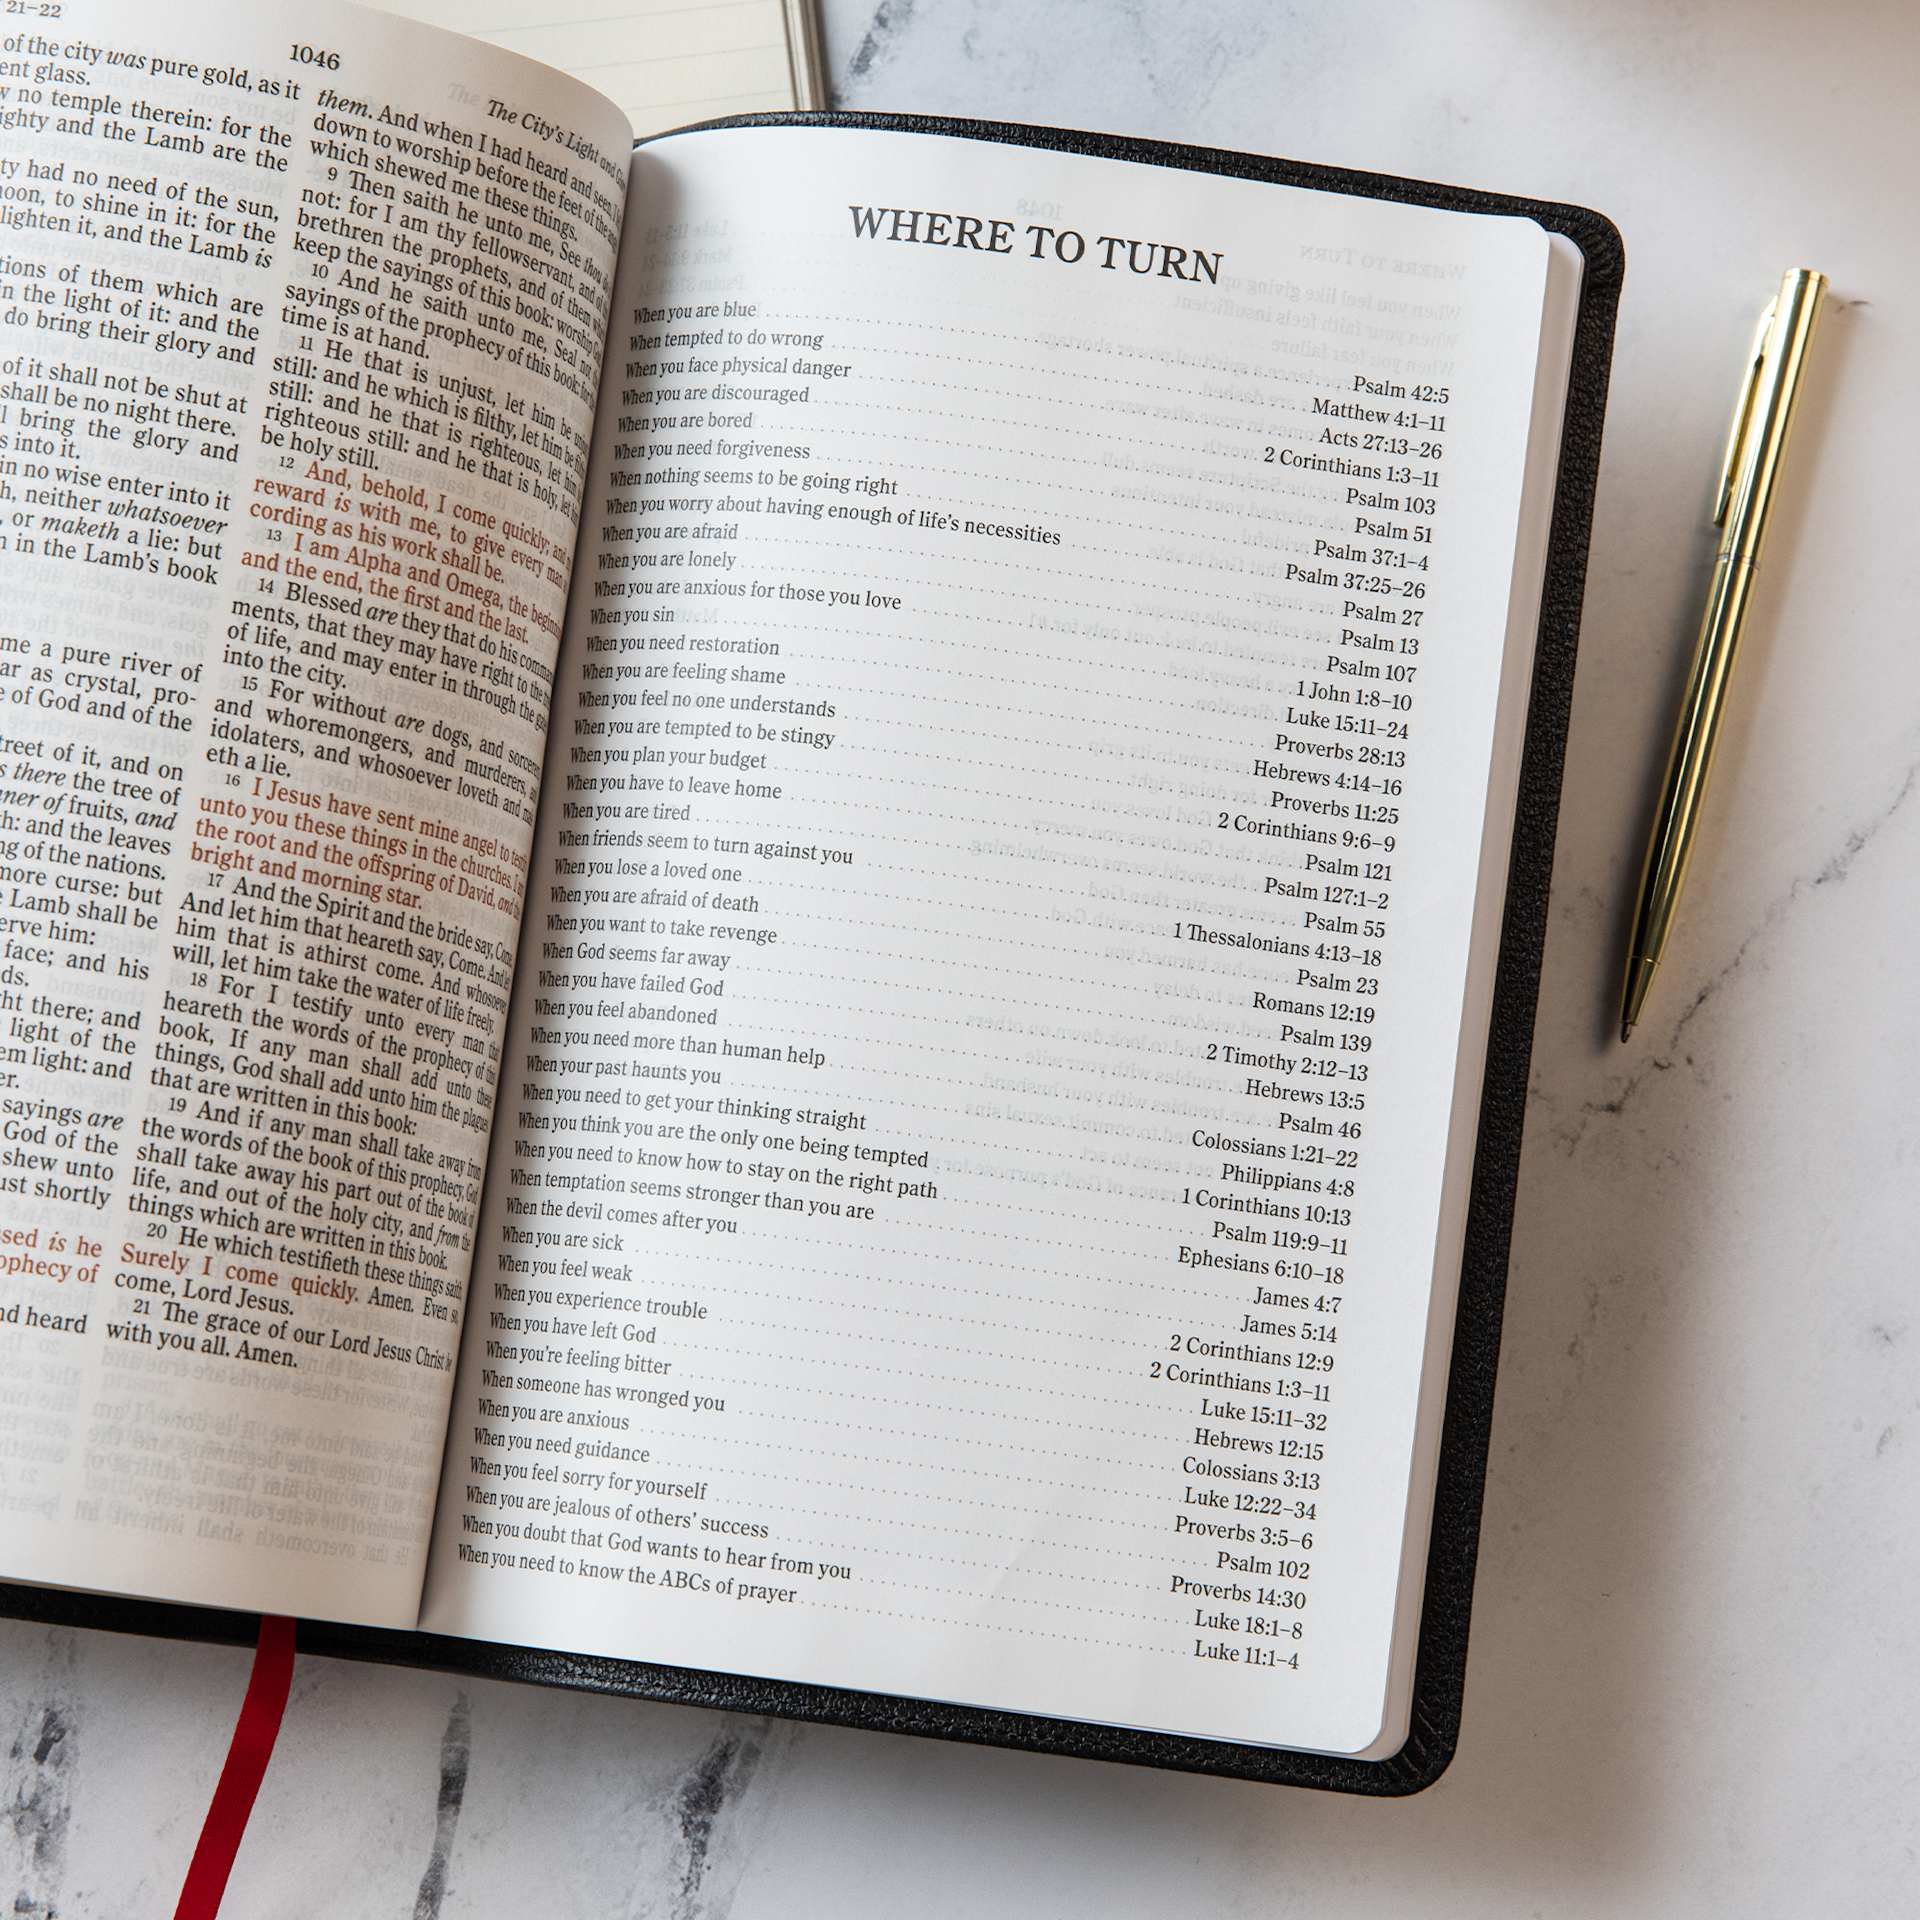 21–22
1046
The City's Light and
of the city was pure gold, as it
ent glass.
no temple therein: for the
ighty and the Lamb are the
ty had no need of the sun,
oon, to shine in it: for the
lighten it, and the Lamb is
tions of them which are
n the light of it: and the
do bring their glory and
of it shall not be shut at
shall be no night there.
l bring the glory and
s into it.
in no wise enter into it
h, neither whatsoever
, or maketh a lie: but
n in the Lamb's book
me a pure river of
ar as crystal, pro-
e of God and of the
treet of it, and on
s there the tree of
ner of fruits, and
th: and the leaves
ng of the nations.
more curse: but
e Lamb shall be
erve him:
face; and his
ds.
ht there; and
light of the
em light: and
er.
sayings are
God of the
shew unto
ust shortly
ssed is he
ophecy of
nd heard
them. And when I had heard and seen, I
down to worship before the feet of the
which shewed me these things.
9 Then saith he unto me, See thou
not: for I am thy fellowservant, and of
brethren the prophets, and of them
keep the sayings of this book: worship
10 And he saith unto me, Seal not
sayings of the prophecy of this book: for
time is at hand.
11 He that is unjust, let him be
still: and he which is filthy, let him be
still: and he that is righteous, let
righteous still: and he that is holy, let
be holy still.
12 And, behold, I come quickly; and
reward is with me, to give every man
cording as his work shall be.
13 I am Alpha and Omega, the
and the end, the first and the last.
14 Blessed are they that do his
ments, that they may have right to the
of life, and may enter in through the
into the city.
15 For without are dogs, and
and whoremongers, and murderers,
idolaters, and whosoever loveth and
eth a lie.
16 I Jesus have sent mine angel to
unto you these things in the churches. I
the root and the offspring of David, and
bright and morning star.
17 And the Spirit and the bride say, Come.
And let him that heareth say, Come. And
him that is athirst come. And whosoever
will, let him take the water of life freely.
18 For I testify unto every man that
heareth the words of the prophecy of this
book, If any man shall add unto these
things, God shall add unto him the plagues
that are written in this book:
19 And if any man shall take away from
the words of the book of this prophecy, God
shall take away his part out of the book of
life, and out of the holy city, and from the
things which are written in this book.
20 He which testifieth these things saith,
Surely I come quickly. Amen. Even so,
come, Lord Jesus.
21 The grace of our Lord Jesus Christ be
with you all. Amen.
WHERE TO TURN
When you are blue Psalm 42:5
When tempted to do wrong Matthew 4:1–11
When you face physical danger Acts 27:13–26
When you are discouraged 2 Corinthians 1:3–11
When you are bored Psalm 103
When you need forgiveness Psalm 51
When nothing seems to be going right Psalm 37:1–4
When you worry about having enough of life's necessities Psalm 37:25–26
When you are afraid Psalm 27
When you are lonely Psalm 13
When you are anxious for those you love Psalm 107
When you sin 1 John 1:8–10
When you need restoration Luke 15:11–24
When you are feeling shame Proverbs 28:13
When you feel no one understands Hebrews 4:14–16
When you are tempted to be stingy Proverbs 11:25
When you plan your budget 2 Corinthians 9:6–9
When you have to leave home Psalm 121
When you are tired Psalm 127:1–2
When friends seem to turn against you Psalm 55
When you lose a loved one 1 Thessalonians 4:13–18
When you are afraid of death Psalm 23
When you want to take revenge Romans 12:19
When God seems far away Psalm 139
When you have failed God 2 Timothy 2:12–13
When you feel abandoned Hebrews 13:5
When you need more than human help Psalm 46
When your past haunts you Colossians 1:21–22
When you need to get your thinking straight Philippians 4:8
When you think you are the only one being tempted 1 Corinthians 10:13
When you need to know how to stay on the right path Psalm 119:9–11
When temptation seems stronger than you are Ephesians 6:10–18
When the devil comes after you James 4:7
When you are sick James 5:14
When you feel weak 2 Corinthians 12:9
When you experience trouble 2 Corinthians 1:3–11
When you have left God Luke 15:11–32
When you're feeling bitter Hebrews 12:15
When someone has wronged you Colossians 3:13
When you are anxious Luke 12:22–34
When you need guidance Proverbs 3:5–6
When you feel sorry for yourself Psalm 102
When you are jealous of others' success Proverbs 14:30
When you doubt that God wants to hear from you Luke 18:1–8
When you need to know the ABCs of prayer Luke 11:1–4